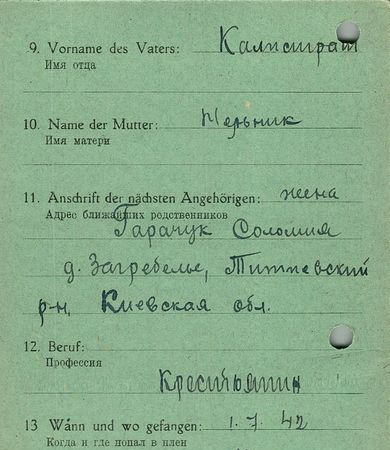 9. Vorname des Vaters: Калистрат
Имя отца
10. Name der Mutter: Мельник
Имя матери
11. Anschrift der nächsten Angehörigen: жена
Адрес ближайших родственников
Гарачук Соломия
д. Загребелье, Титиевский
р-н, Киевская обл.
12. Beruf:
Профессия
Крестьянин
13 Wann und wo gefangen: 1.7.42
Когда и где попал в плен